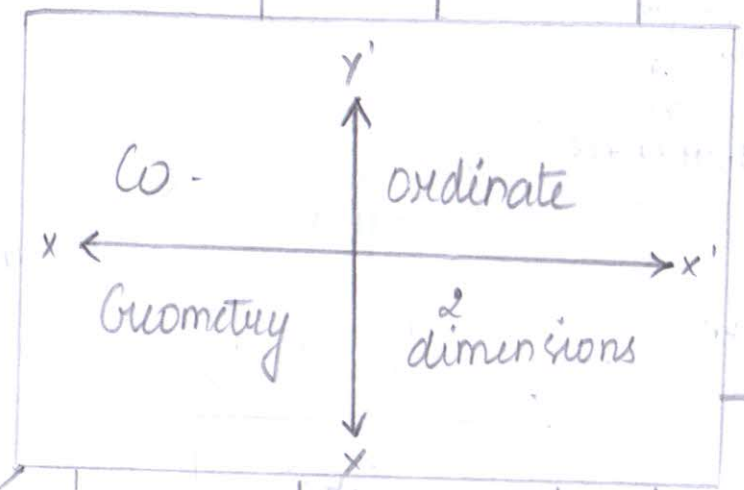 Y'
Co- ordinate
X X'
Geometry 2
dimensions
X